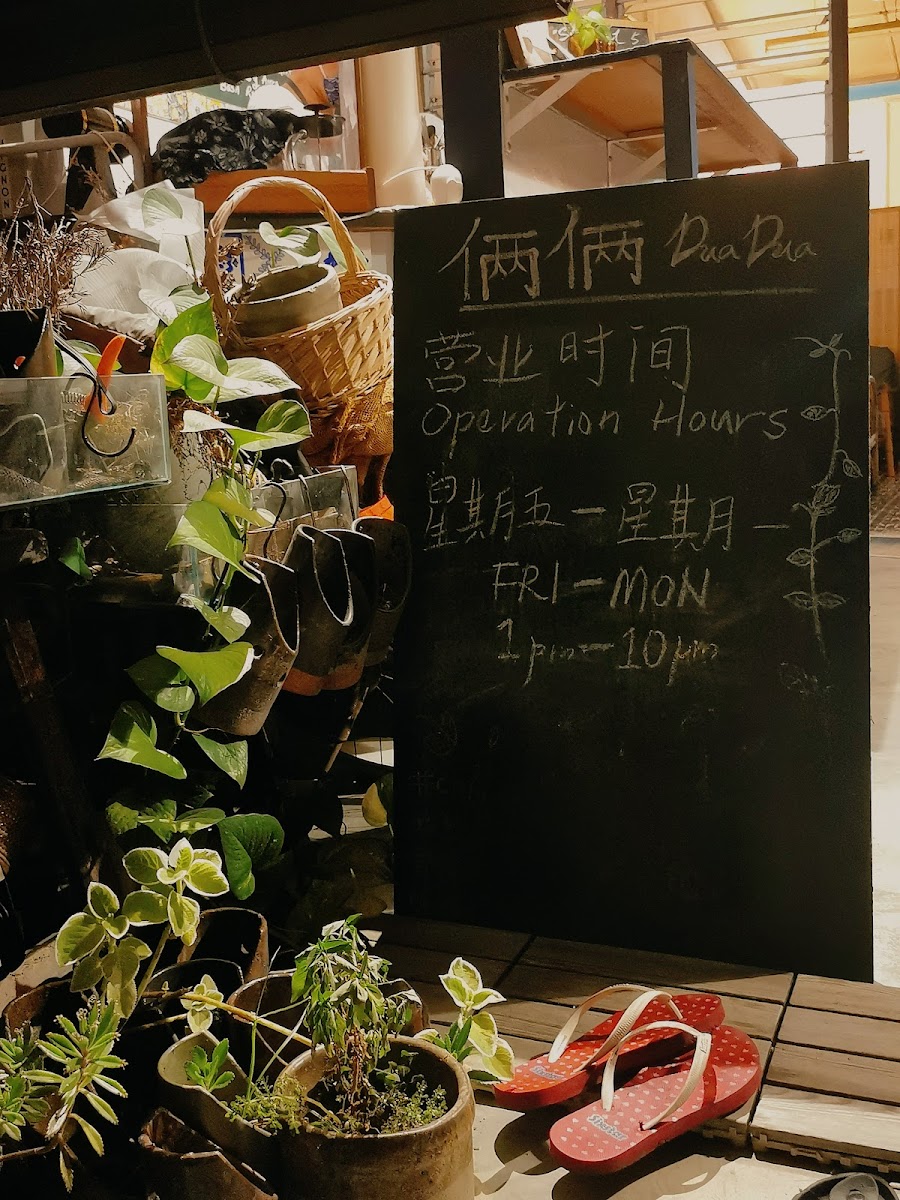 俩俩 DuaDua
营业时间
Operation Hours
星期五 - 星期一
FRI - MON
1pm - 10pm